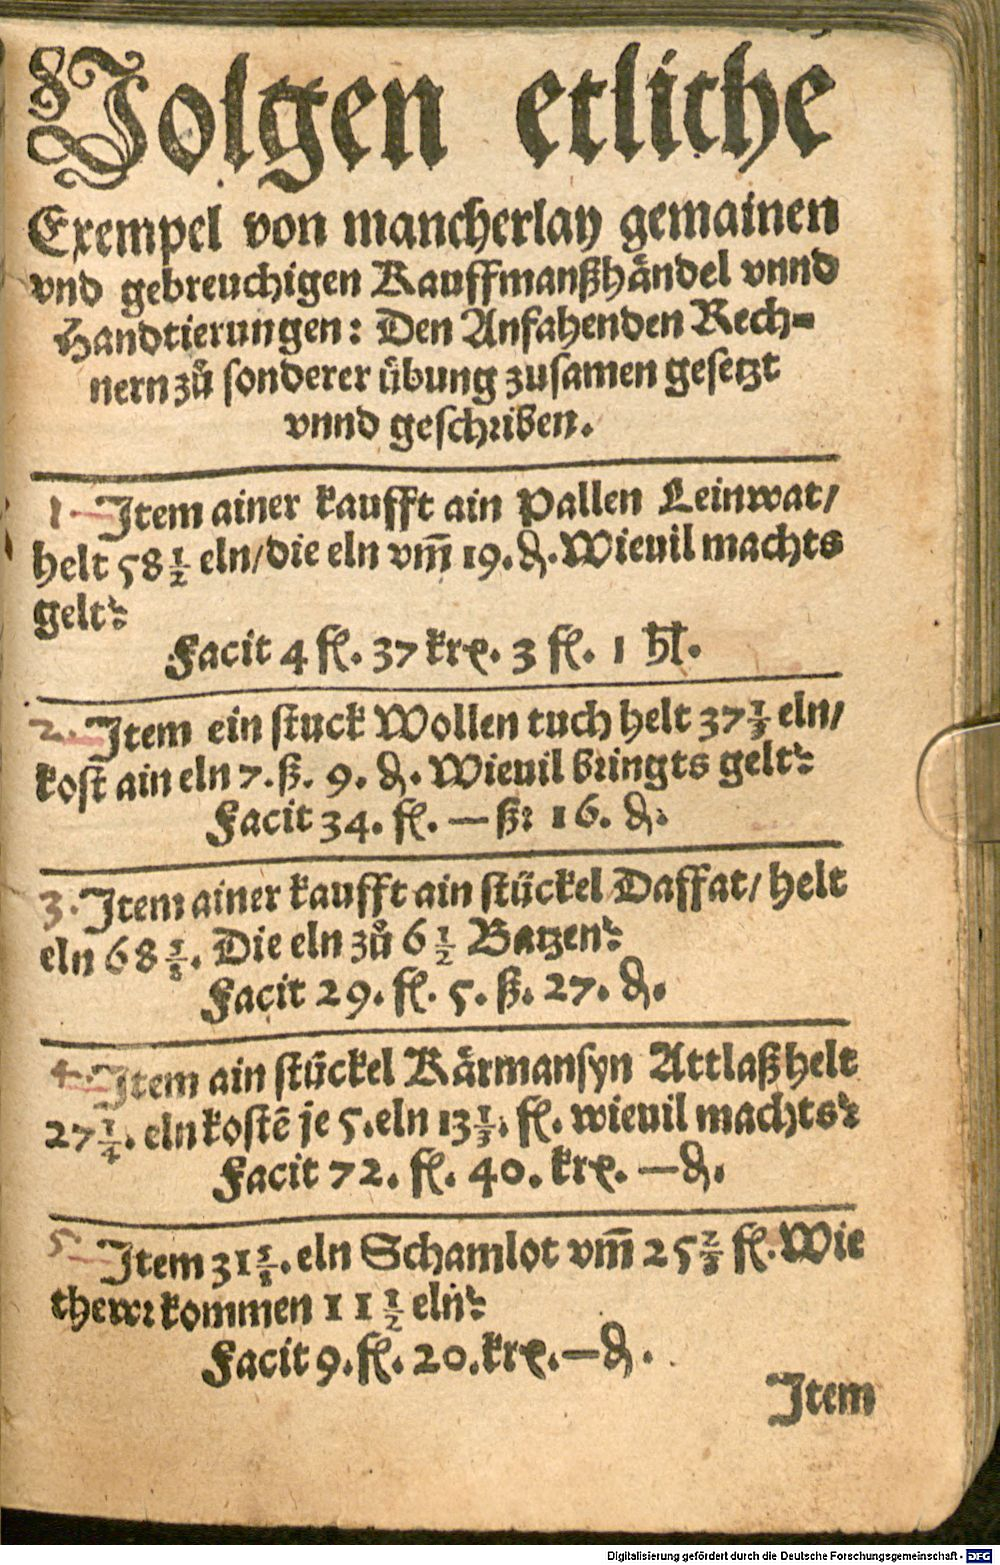 Volgen etliche
Exempel von mancherlay gemainen
vnd gebreuchigen Kauffmanßhändel vnnd
Handtierungen: Den Anfahenden Rech-
nern zů sonderer übung zusamen gesetzt
vnnd geschriben.
1 Item ainer kaufft ain Pallen Leinwat/
helt 58 1/2 eln/die eln vm̃ 19. ₰. Wieuil machts
gelt?
Facit 4 fl. 37 krꝭ. 3 fl. 1 hl.
2. Item ein stuck Wollen tuch helt 37 1/3 eln/
kost ain eln 7. ß. 9. ₰. Wieuil bringts gelt?
Facit 34. fl. — ß: 16. ₰.
3. Item ainer kaufft ain stückel Daffat/ helt
eln 68 5/8. Die eln zů 6 1/2 Batzen?
Facit 29. fl. 5. ß. 27. ₰.
4. Item ain stückel Kärmansyn Attlaß helt
27 1/4. eln kostẽ je 5. eln 13 1/3. fl. wieuil machts?
Facit 72. fl. 40. krꝭ. — ₰.
5 Item 31 5/8. eln Schamlot vm̃ 25 2/3 fl. Wie
thewr kommen 11 1/2 eln?
Facit 9. fl. 20. krꝭ. — ₰.
Item
Digitalisierung gefördert durch die Deutsche Forschungsgemeinschaft - DFG